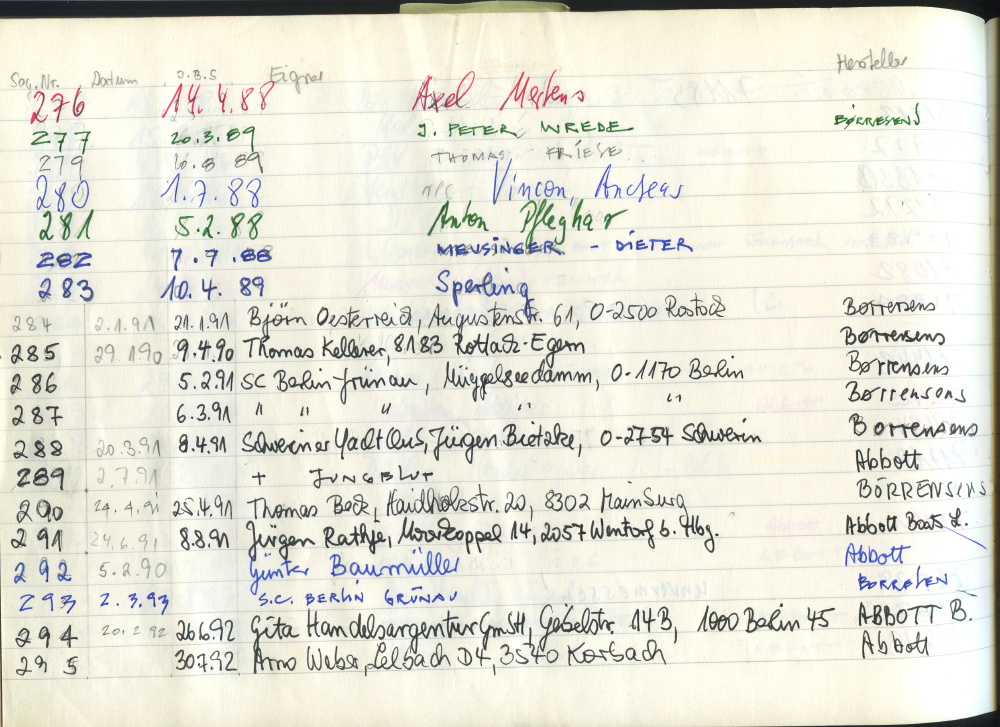 Seg. Nr. Datum O.B.S Eigner Hersteller
276 14.4.88 Axel Mertens
277 20.3.89 J. PETER WREDE BØRRESENS
279 89 THOMAS FRIESE
280 1.7.88 Vincon, Andreas
281 5.2.88 Anton Pfleghar
282 7.7.88 MEUSINGER - DIETER
283 10.4.89 Sperling
284 2.1.91 21.1.91 Björn Oesterreich, Augustenstr. 61, O-2500 Rostock Børrensens
285 29.1.90 9.4.90 Thomas Kellerer, 8183 Rottach-Egern Børrensens
286 5.2.91 SC Berlin Grünau, Müggelseedamm, O-1170 Berlin Børrensens
287 6.3.91 " " " " " Børrensens
288 20.3.91 8.4.91 Schweriner Yachtclub, Jürgen Bietzke, O-2754 Schwerin Borrensens
289 2.7.91 + JUNGBLUT Abbott
290 24.4.91 25.4.91 Thomas Beck, Haidholzstr. 20, 8302 Mainburg BÖRRENSENS
291 24.6.91 8.8.91 Jürgen Rathje, Moorkoppel 14, 2057 Wentorf b. Hbg. Abbott Boats L.
292 5.2.90 Günter Baumüller Abbott
293 2.3.93 S.C. BERLIN GRÜNAU BORRESEN
294 20.2.92 26.6.92 Gita Handelsargentur GmbH, Göbelstr. 14B, 1000 Berlin 45 ABBOTT B.
295 30.7.92 Arno Weber, Lelbach D4, 3540 Korbach Abbott